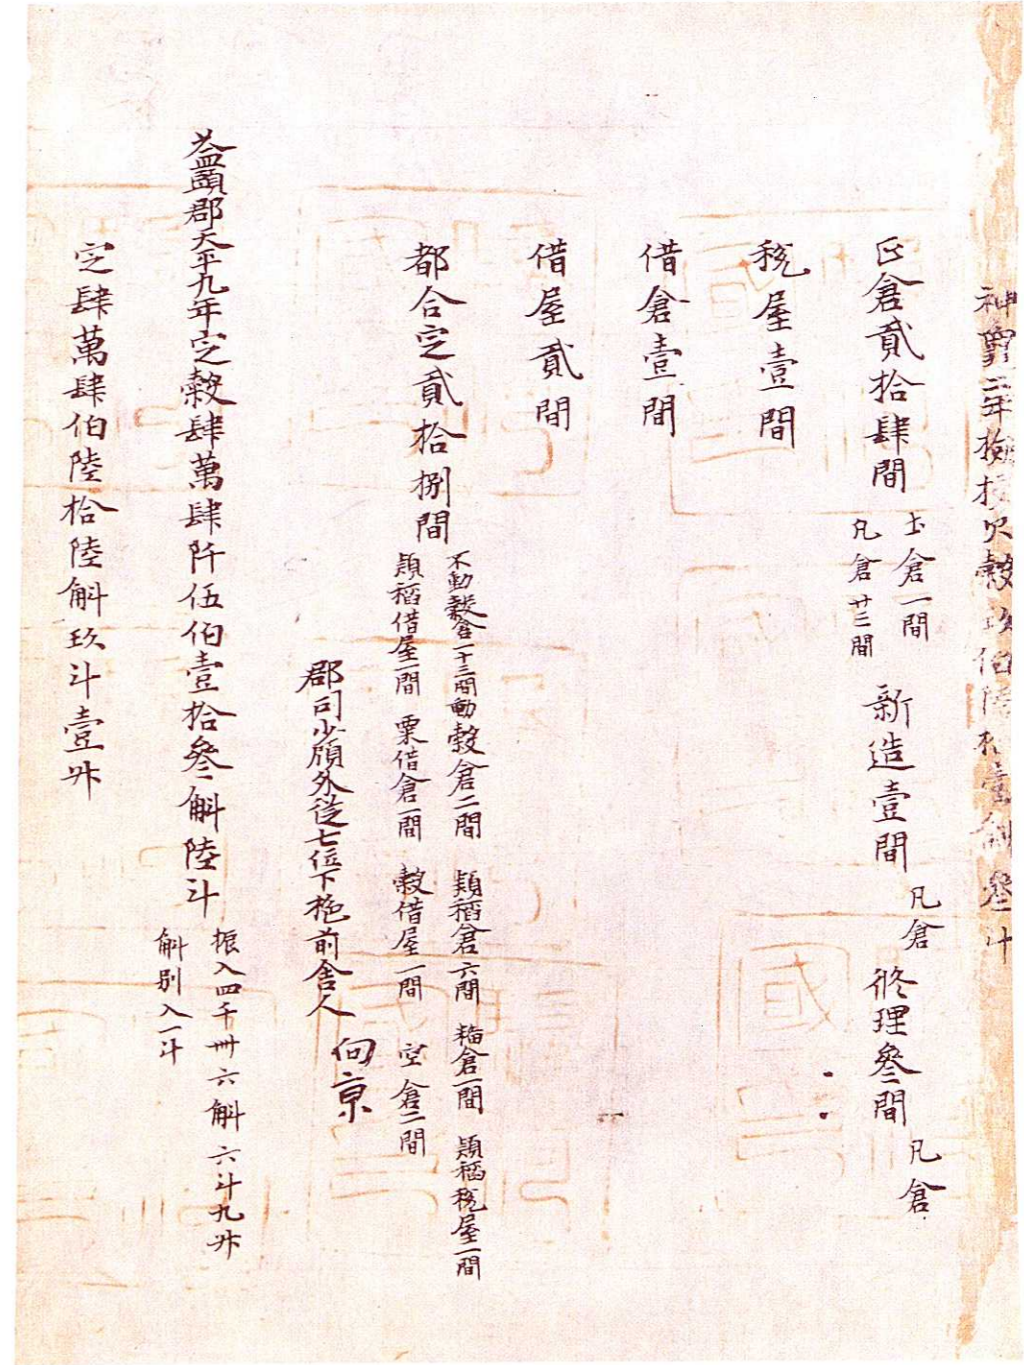 神龜二年檢校欠穀玖伯陸拾壹斛參斗
正倉貳拾肆間
土倉一間
凡倉廿三間
新造壹間
凡倉
修理參間
凡倉
税屋壹間
借倉壹間
借屋貳間
都合定貳拾捌間
不動穀倉一十三間 動穀倉二間 穎稻倉六間 糒倉一間 穎稻税屋一間
穎稻借屋一間 粟借倉一間 穀借屋一間 空倉二間
郡司少領外從七位下拖前舍人 向京
益頭郡天平九年定穀肆萬肆阡伍伯壹拾參斛陸斗
振入四千卌六斛六斗九升
斛別入一斗
定肆萬肆伯陸拾陸斛玖斗壹升